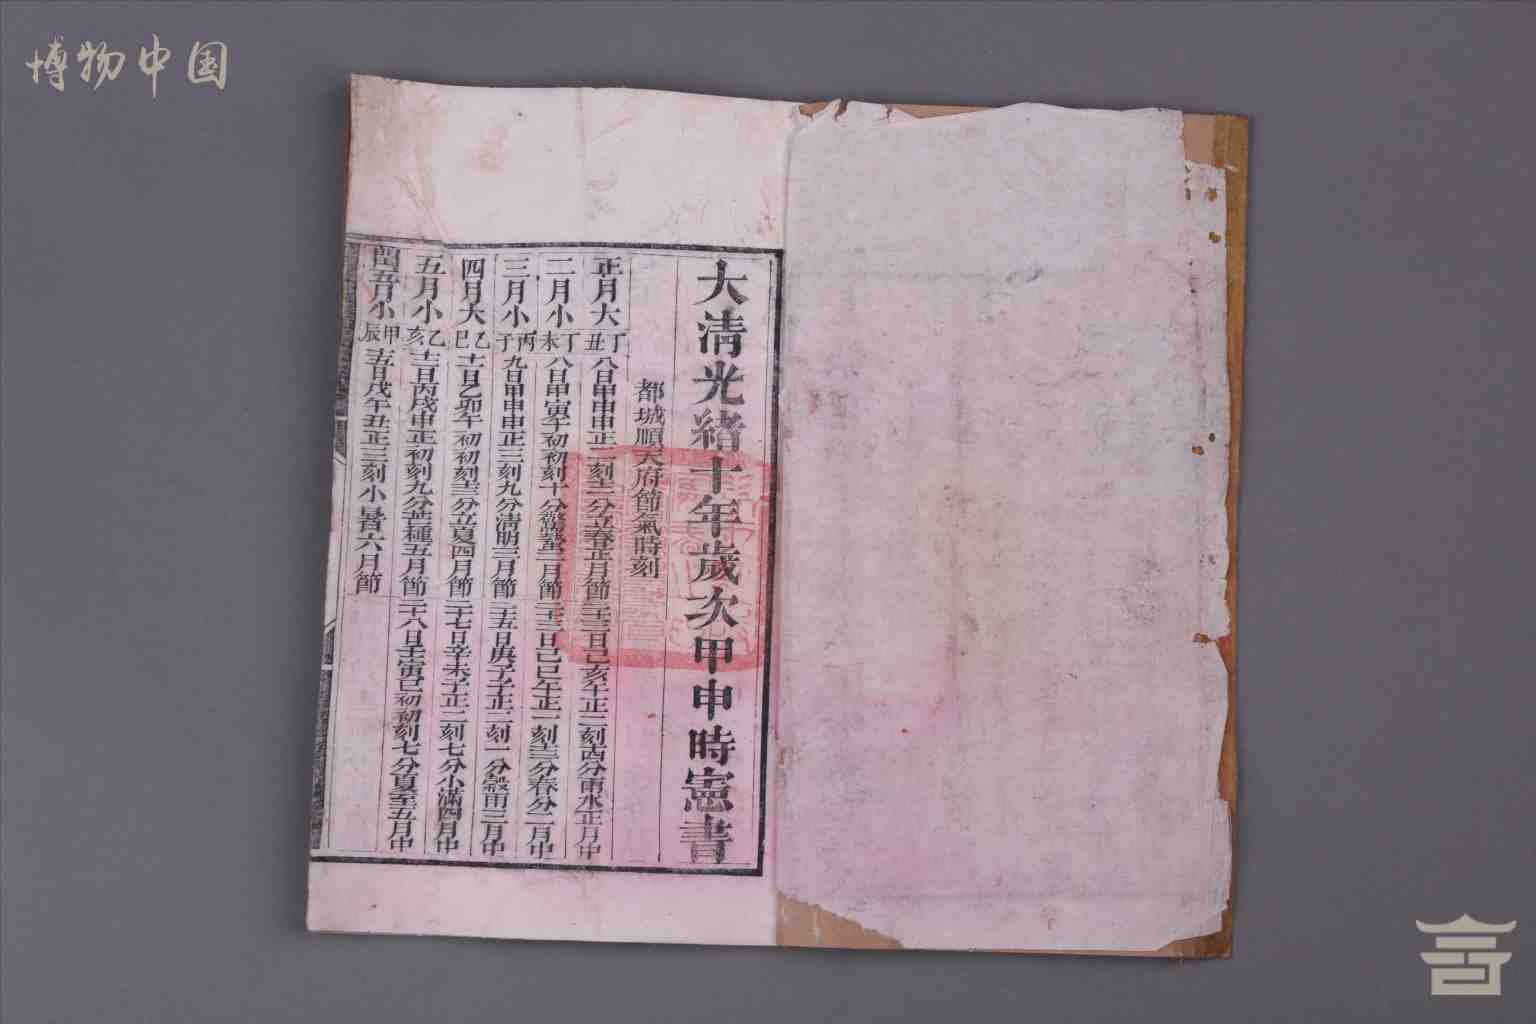 博物中国
大清光緒十年歲次甲申時憲書
都城順天府節氣時刻
正月大 丁丑 八日甲申申正二刻十二分立春正月節 二十三日己亥午正二刻十四分雨水正月中
二月小 丁未 八日甲寅午初初刻十分驚蟄二月節 二十三日己巳午正一刻十三分春分二月中
三月小 丙子 九日甲申申正三刻九分清明三月節 二十五日庚子子正二刻一分穀雨三月中
四月大 乙巳 十一日乙卯午初初刻十三分立夏四月節 二十七日辛未子正二刻七分小滿四月中
五月小 乙亥 十二日丙戌申正初刻九分芒種五月節 二十八日壬寅巳初初刻七分夏至五月中
閏五月小 甲辰 十五日戊午丑正三刻小暑六月節